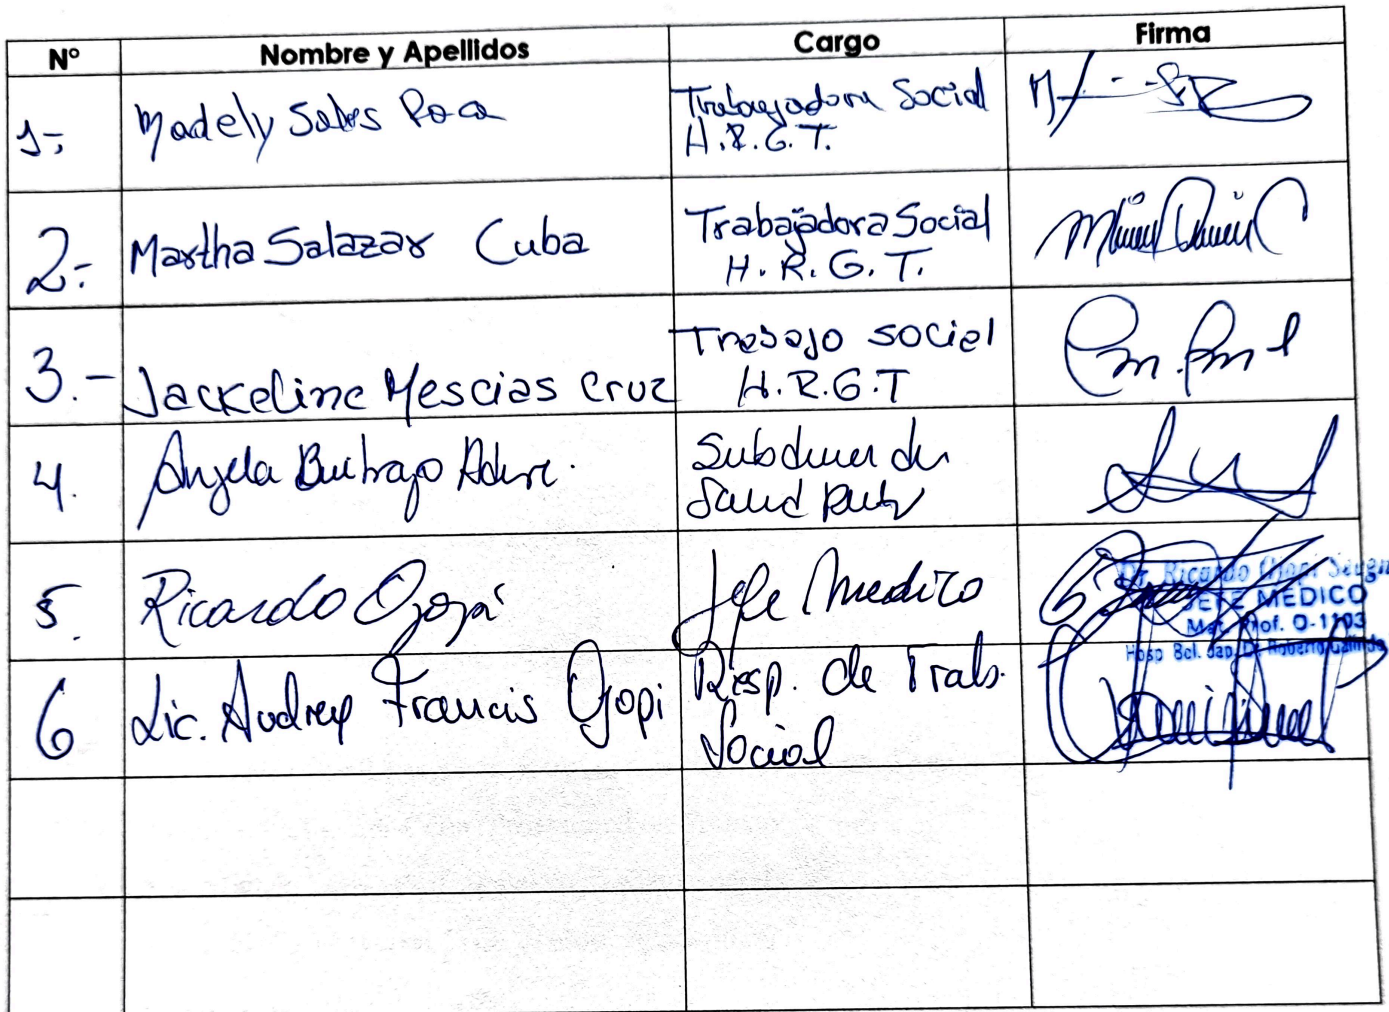 N° Nombre y Apellidos Cargo Firma
1.- Madely Soles Roca Trabajadora Social
H.R.G.T.
2.- Martha Salazar Cuba Trabajadora Social
H.R.G.T.
3.- Jackeline Mescias Cruz Trabajo social
H.R.G.T
4. Angela Buitrago
5. Ricardo Ojopi Jefe Medico
Dr. Ricardo Ojopi
JEFE MEDICO
Mat. Prof. O-1103
Hosp Bol. Jap. Dr. Roberto Galindo
6 Lic. Audrey Francis Ojopi Resp. de Trab.
Social